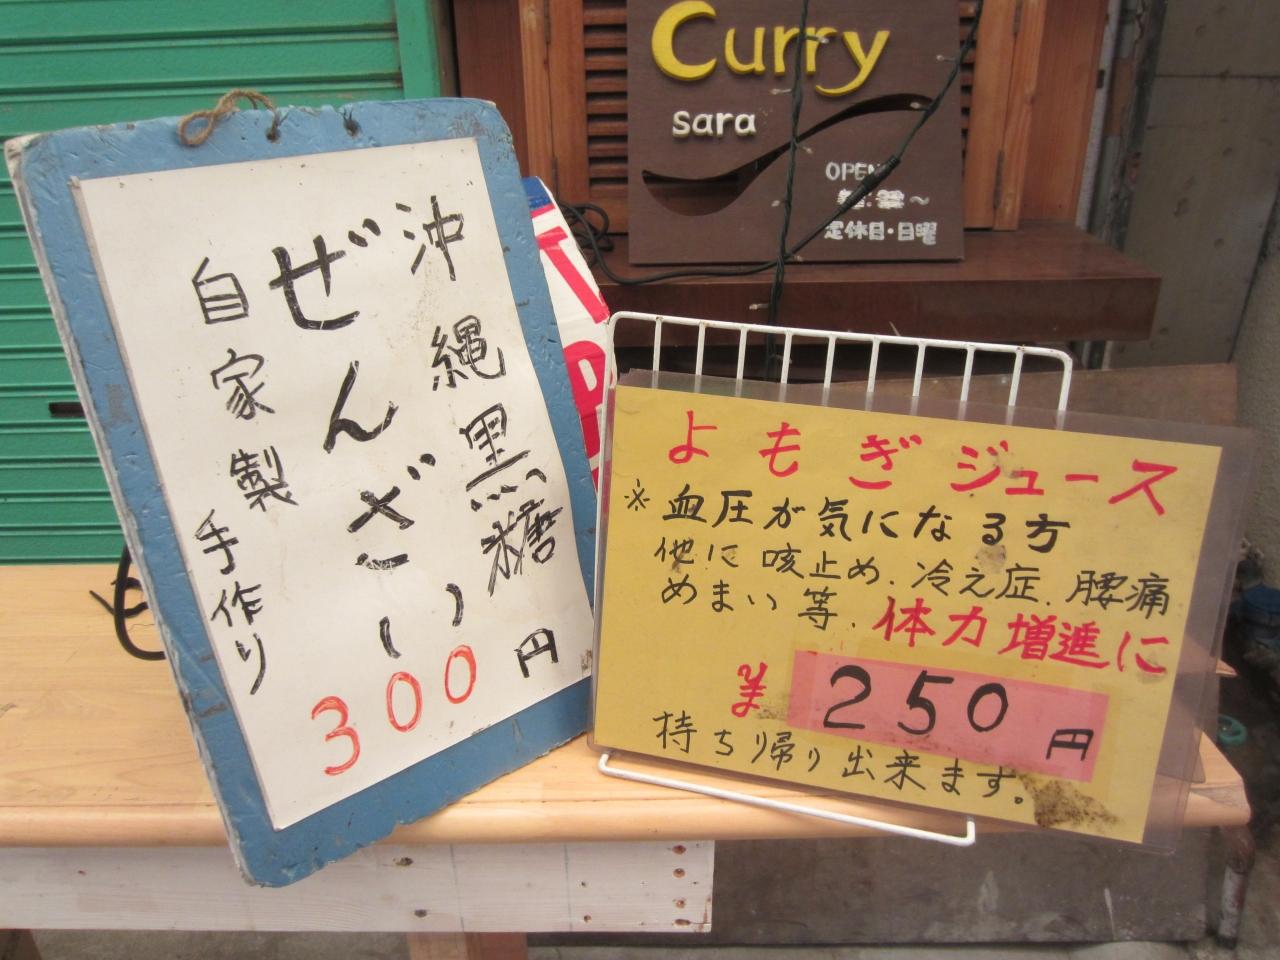 Curry
sara
OPEN
定休日・日曜
沖縄黒糖
ぜんざい
自家製
手作り
300円
よもぎジュース
※血圧が気になる方
他に咳止め.冷え症.腰痛
めまい等.体力増進に
¥250円
持ち帰り出来ます。